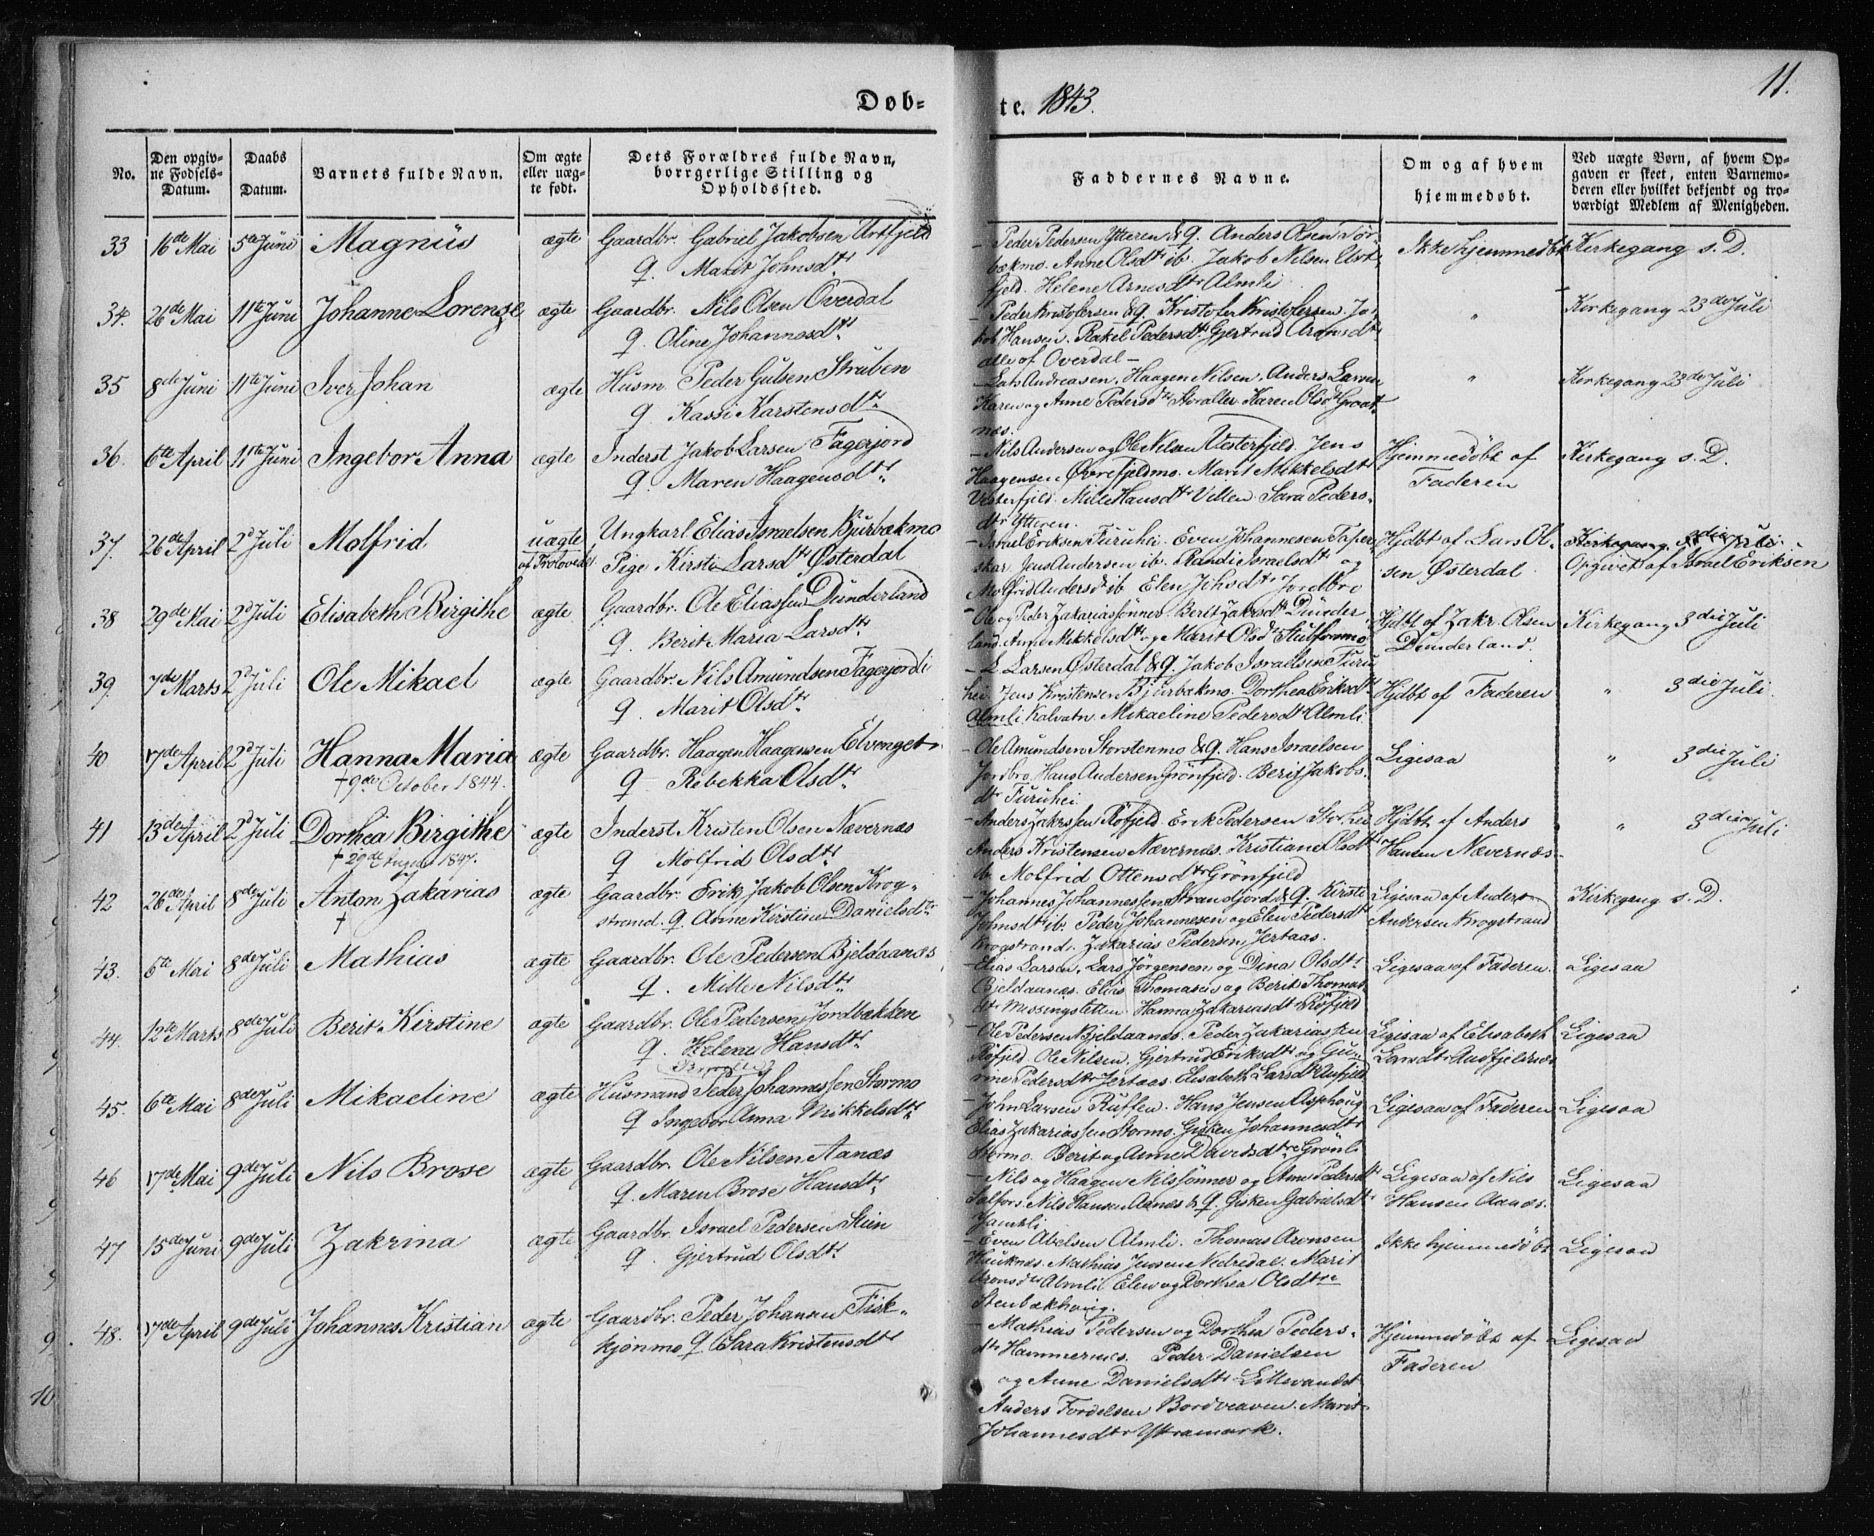 11.
Døb- te. 1843.
No.
Den opgiv-
ne Fødsels-
Datum.
Daabs
Datum.
Barnets fulde Navn.
Om ægte
eller uæg-
te født.
Dets Forældres fulde Navn,
borrgerlige Stilling og
Opholdssted.
Faddernes Navne.
Om og af hvem
hjemmedøbt.
Ved uægte Børn, af hvem Op-
gaven er skeet, enten Barnemo-
deren eller hvilket bekjendt og tro-
værdigt Medlem af Menigheden.
33 16de Mai 5te Juni Magnus ægte Gaardbr. Gabriel Jakobsen Urtfjeld
q. Marit Johnsdtr
- Peder Pedersen Ytteren & q. Anders Olsen Tør-
bækmo. Anne Olsdtr ib. Jakob Nilsen Urt-
fjeld. Helene Arnesdtr Almli
Ikke hjemmedøbt Kirkegang s. D.
34. 26de Mai 11te Juni Johanne Lorenze ægte Gaardbr. Nils Olsen Overdal
q. Oline Johannesdtr
- Peder Kristofersen & q. Kristofer Kristofersen. Ja-
kob Hansen. Rakel Pedersdtr Gjertrud Aronsdtr
alle af Overdal -
" Kirkegang 23de Juli
35 8de Juni 11te Juni Iver Johan ægte Husm. Peder Gulsen Struben
q. Kassi Karstensdtr
- Lars Andreasen. Haagen Nilsen. Anders Larsen
Karen og Anne Pedersdtr Karen Olsdtr
næs.
" Kirkegang 23de Juli
36. 6te April 11te Juni Ingebor Anna ægte Inderst Jakob Larsen Fagerjord
q. Maren Haagensdtr
- Nils Andersen og Ole Nilsen Vesterfjeld. Jens
Haagensen Øvrefjeldmo. Marit Mikkelsdtr
Vesterfjeld. Mille Hansdtr Villen. Sara Peders-
dtr Ytteren.
Hjemmedøbt af
Faderen
Kirkegang s. D.
37. 26de April 2d Juli Molfrid uægte
af Trolovede
Ungkarl Elias Israelsen Bjurbækmo
Pige Kirsti Larsdtr Østerdal
- Israel Eriksen Furuhei. Even Johannesen
skar. Jens Andersen ib. Randi Israelsdtr og
Molfrid Andersd ib Elen Johsdtr Jordbro
Hjdbt af Lars Ol-
sen Østerdal
Kirkegang 3die Juli
Opgivet af Israel Eriksen
38 29de Mai 2d Juli Elisabeth Birgithe ægte Gaardbr. Ole Eliassen Dunderland
q. Berit Maria Larsdtr
- Ole og Peder Zakariassønner Berit Zakrsdtr Dunder
land. Anne Mikkelsdtr og Marit Olsdtr
Hjdbt af Zakr. Olsen
Dunderland.
Kirkegang 3die Juli
39. 7de Marts 2d Juli Ole Mikael ægte Gaardbr. Nils Amundsen Fagerjordli
q. Marit Olsdtr
- L Larsen Østerdal & q. Jakob Israelsen Furu
hei. Jens Kristensen Bjurbækmo. Dorthea Eriksdtr
Almli Kalvatn. Mikaeline Pedersdtr Almli
Hjdbt af Faderen
" 3die Juli.
40 17de April 2d Juli Hanna Maria
† 9de October 1844.
ægte Gaardbr. Haagen Haagensen Elvenget
q - Rebekka Olsdtr
- Ole Amundsen Storstenmo & q. Hans Israelsen
Jordbro. Hans Andersen Grønfjeld. Berit Jakobs-
dtr Furuhei.
Ligesaa
" 3die Juli
41 13de April 2d Juli Dorthea Birgithe
† 29de August 1847.
ægte Inderst Kristen Olsen Nævernæs
q Molfrid Olsdtr
- Anders Zakrssen Røfjeld. Erik Pedersen Storhei
Anders Kristensen Nævernæs. Kristiane Olsdtr
ib. Molfrid Ottensdtr Grønfjeld
Hjdbt af Anders
Hansen Nævernæs
" 3die Juli
42 26de April 8de Juli Anton Zakarias
†
ægte Gaardbr. Erik Jakob Olsen Krog-
strand. q Anne Kirstine Danielsdtr
- Johannes Johannessen Strandjord & q. Kirsti
Johnsdtr ib. Peder Johannesen og Elen Pedersdtr
Krogstrand. Zakarias Pedersen Jertaas.
Ligesaa af Anders
Andersen Krogstrand
Kirkegang s. D.
43. 6te Mai 8de Juli Mathias ægte Gaardbr. Ole Pedersen Bjeldaanæs
q. Mille Nilsdtr
- Elias Larsen, Lars Jørgensen og Dina Olsdtr
Bjeldaanæs. Elias Thomasen og Berit Thomas
dtr Messingsletten Hanna Zakariasdtr Røfjeld
Ligesaa af Faderen. Ligesaa
44. 12te Marts 8de Juli Berit Kirstine ægte Gaardbr. Ole Pedersen Jordbækken
q. Helena Hansdtr
- Ole Pedersen Bjeldaanæs. Peder Zakariassen
Røfjeld. Ole Nilsen. Gjertrud Eriksdtr og Gu-
rine Pedersdtr Jertaas. Elisabeth Larsdtr Aufjeld
Ligesaa af Elisabeth
Larsdtr
Ligesaa
45. 6te Mai 8de Juli Mikaeline ægte Husmand Peder Johannessen Stormo
q Ingebor Anna Mikkelsdtr
- John Larsen Ruffen. Hans Jensen Asphoug
Elias Zakariassen Stormo. Gisken Johannesdtr
Stormo. Berit og Anne Davidsdtre Grønli
Ligesaa af Faderen Ligesaa
46 17de Mai 9de Juli Nils Brose ægte Gaardbr. Ole Nilsen Aanæs
q. Maren Brose Hansdtr
- Nils og Haagen Nilssønner og Ane Pedersdtr
Selfors. Nils Hansen Aanæs & q. Gisken Gabrielsdtr
Jamtli
Ligesaa af Nils
Hansen Aanæs.
Ligesaa
47 15de Juni 9de Juli Zakrina ægte Gaardbr. Israel Pedersen Stien
q. Gjertrud Olsdtr
- Even Abelsen Almli. Thomas Aronsen
Hauknes. Mathias Jensen Nedredal. Marit
Aronsdtr Almlil Elen og Dorthea Olsdtre
Stenbækhaug.
Ikke hjemmedøbt Ligesaa
48. 7de April 9de Juli Johannes Kristian ægte Gaardbr. Peder Johansen Fisk-
kjønmo q Sara Kristensdtr
- Mathias Pedersen og Dorthea Peders-
dtr Hammernes. Peder Danielsen
og Anne Danielsdtr Lillevandet
Anders Fordelsen Bordvedaven. Marit
Johannesdtr Yttramark.
Hjemmedøbt af
Faderen
Ligesaa